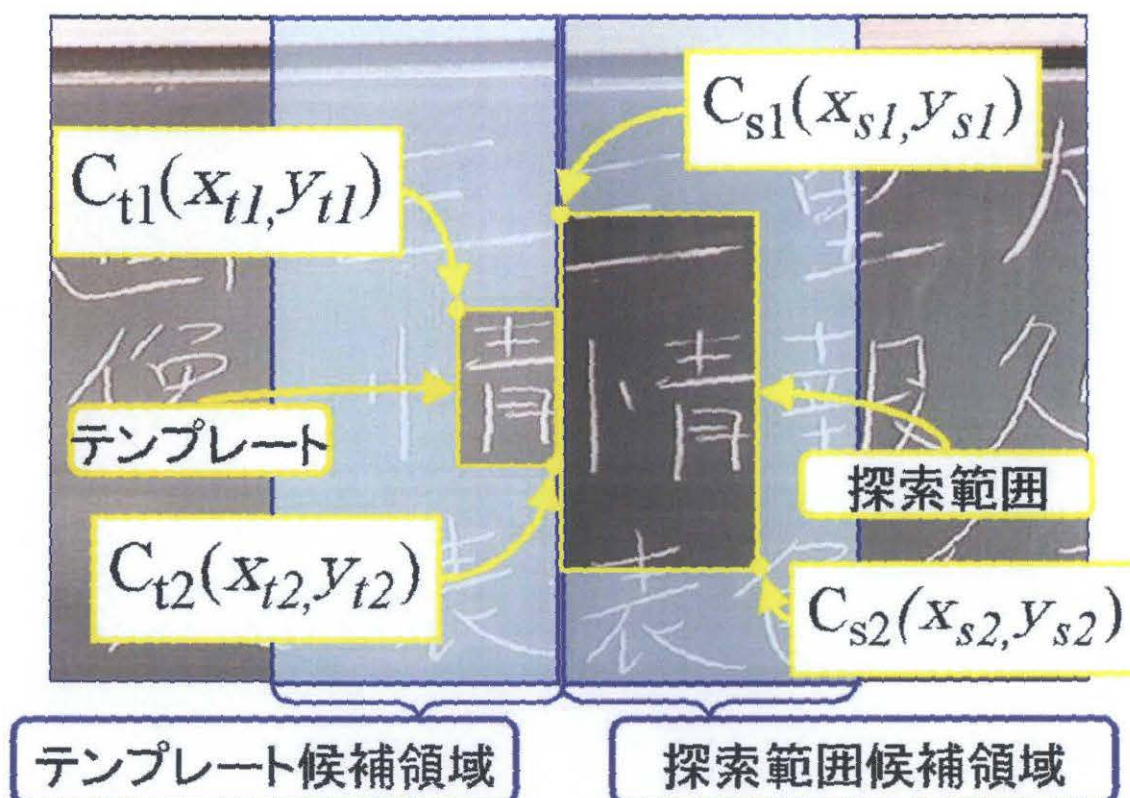 C_s1(x_s1,y_s1)
C_t1(x_t1,y_t1)
像
情
情
報
久
テンプレート
探索範囲
C_t2(x_t2,y_t2)
C_s2(x_s2,y_s2)
表
表
テンプレート候補領域
探索範囲候補領域